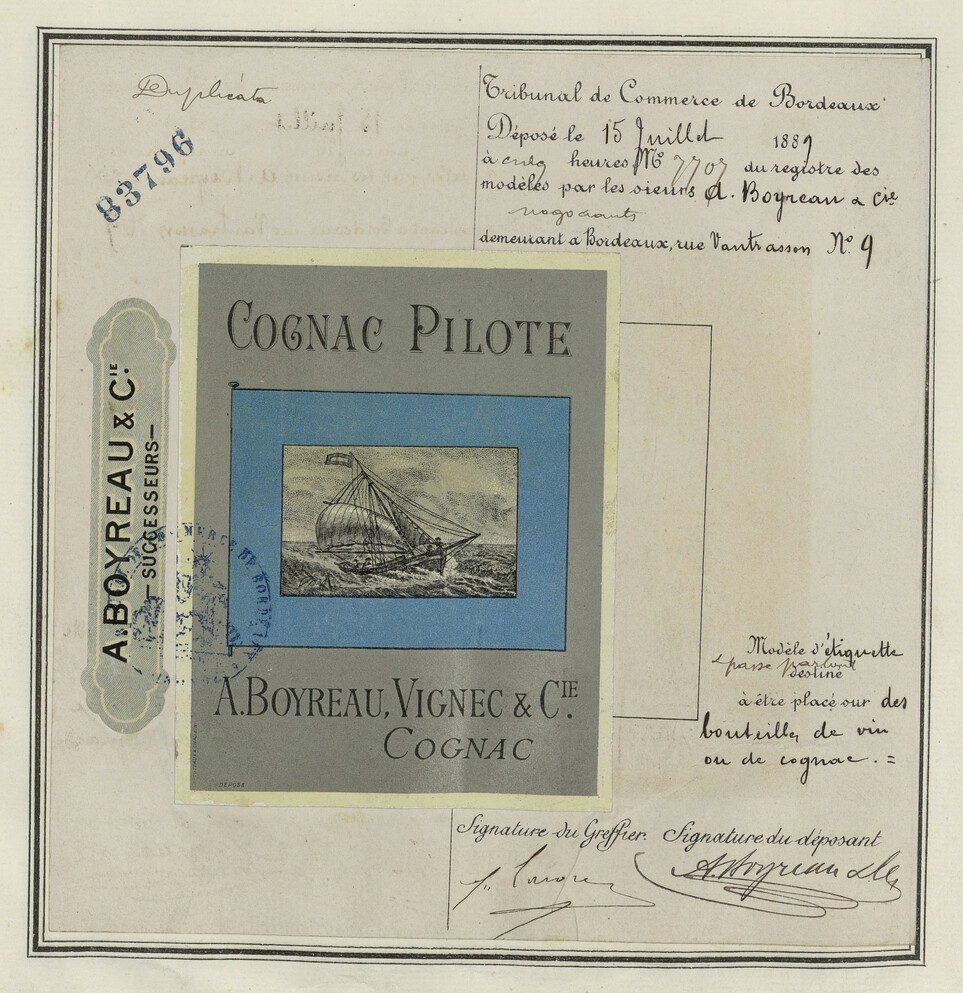 Duplicata
83796
Tribunal de Commerce de Bordeaux
Déposé le 15 Juillet 1889
à cinq heures No 7707 du registre des
modèles par les sieurs A. Boyreau & Cie
négociants
demeurant a Bordeaux, rue Vantrasson No. 9
A. BOYREAU & CIE.
— SUCCESSEURS —
COGNAC PILOTE
A. BOYREAU, VIGNEC & CIE.
COGNAC
DÉPOSÉ
COMMERCE DE BORDEAUX
Modèle d'étiquette
& passe partout
destiné
à être placé sur des
bouteilles de vin
ou de cognac. =
Signature du Greffier. Signature du déposant
A. Boyreau & Cie